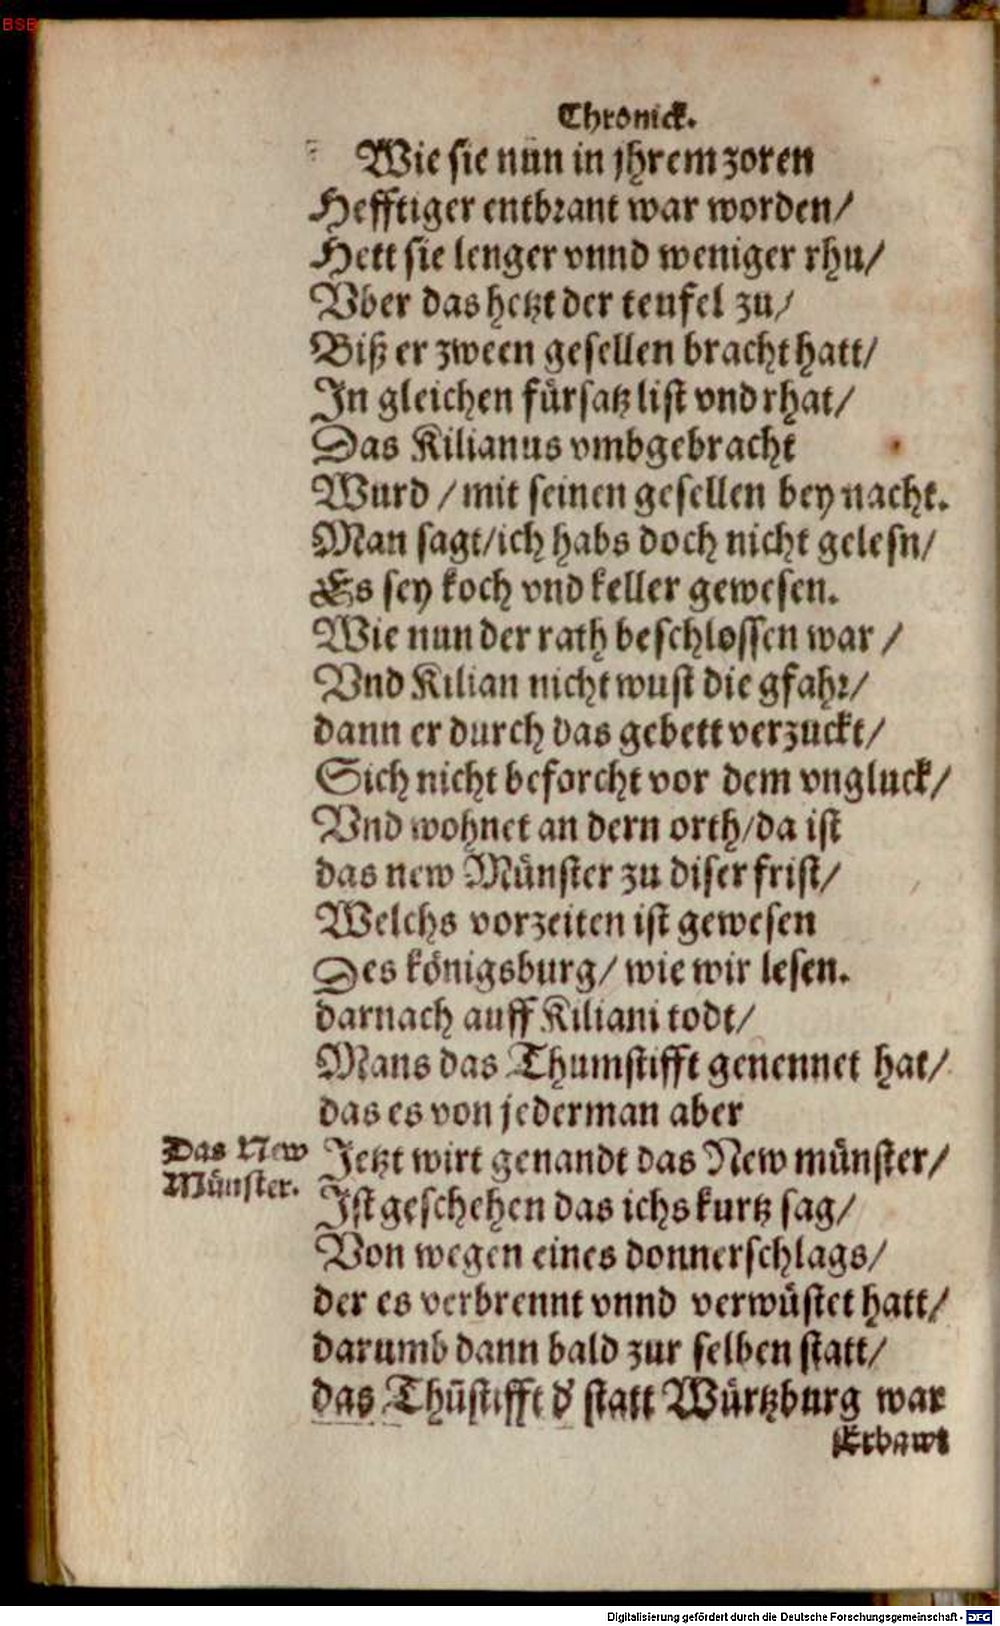 BSB
Chronick.
Wie sie nun in jhrem zoren
Hefftiger entbrant war worden/
Hett sie lenger vnnd weniger rhu/
Vber das hetzt der teufel zu/
Biß er zween gesellen bracht hatt/
In gleichen fürsatz list vnd rhat/
Das Kilianus vmbgebracht
Wurd / mit seinen gesellen bey nacht.
Man sagt/ich habs doch nicht gelesn/
Es sey koch vnd keller gewesen.
Wie nun der rath beschlossen war /
Vnd Kilian nicht wust die gfahr/
dann er durch das gebett verzuckt/
Sich nicht beforcht vor dem vngluck/
Vnd wohnet an dern orth/da ist
das new Münster zu diser frist/
Welchs vorzeiten ist gewesen
Des königsburg/ wie wir lesen.
darnach auff Kiliani todt/
Mans das Thumstifft genennet hat/
das es von jederman aber
Das New
Münster.
Jetzt wirt genandt das New münster/
Ist geschehen das ichs kurtz sag/
Von wegen eines donnerschlags/
der es verbrennt vnnd verwüstet hatt/
darumb dann bald zur selben statt/
das Thūstifft d' statt Würtzburg war
Erbawt
Digitalisierung gefördert durch die Deutsche Forschungsgemeinschaft - DFG